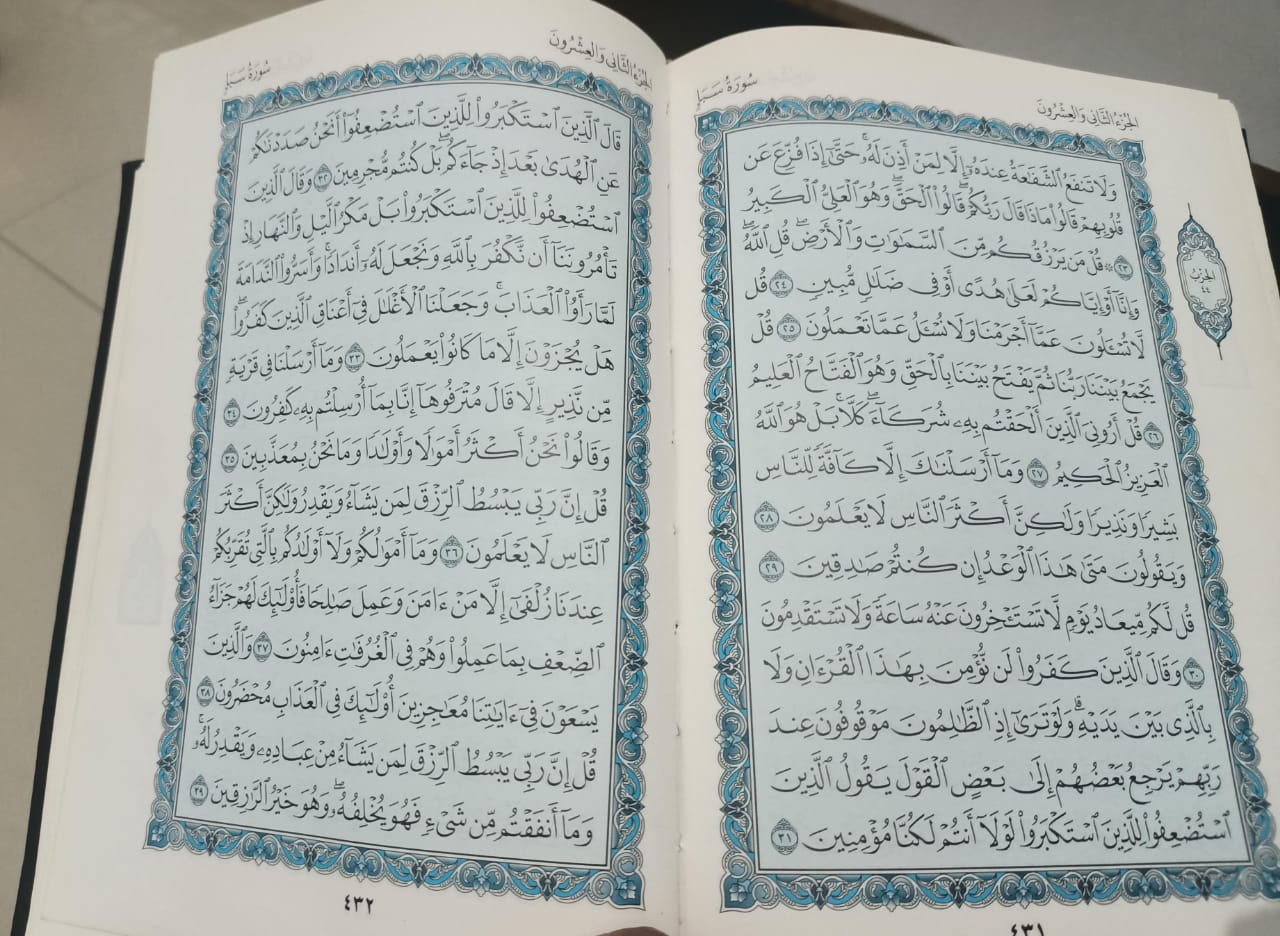 سُورَةُ سَبَإٍ
الجُزْءُ الثَّانِي وَالعِشْرُونَ
وَلَا تَنفَعُ ٱلشَّفَٰعَةُ عِندَهُۥٓ إِلَّا لِمَنْ أَذِنَ لَهُۥۚ حَتَّىٰٓ إِذَا فُزِّعَ عَن
قُلُوبِهِمْ قَالُوا۟ مَاذَا قَالَ رَبُّكُمْۖ قَالُوا۟ ٱلْحَقَّۖ وَهُوَ ٱلْعَلِىُّ ٱلْكَبِيرُ
٢٣ ۞ قُلْ مَن يَرْزُقُكُم مِّنَ ٱلسَّمَٰوَٰتِ وَٱلْأَرْضِۖ قُلِ ٱللَّهُۖ
وَإِنَّآ أَوْ إِيَّاكُمْ لَعَلَىٰ هُدًى أَوْ فِى ضَلَٰلٍ مُّبِينٍ ٢٤ قُل
لَّا تُسْـَٔلُونَ عَمَّآ أَجْرَمْنَا وَلَا نُسْـَٔلُ عَمَّا تَعْمَلُونَ ٢٥ قُلْ
يَجْمَعُ بَيْنَنَا رَبُّنَا ثُمَّ يَفْتَحُ بَيْنَنَا بِٱلْحَقِّ وَهُوَ ٱلْفَتَّاحُ ٱلْعَلِيمُ
٢٦ قُلْ أَرُونِىَ ٱلَّذِينَ أَلْحَقْتُم بِهِۦ شُرَكَآءَۖ كَلَّاۚ بَلْ هُوَ ٱللَّهُ
ٱلْعَزِيزُ ٱلْحَكِيمُ ٢٧ وَمَآ أَرْسَلْنَٰكَ إِلَّا كَآفَّةً لِّلنَّاسِ
بَشِيرًا وَنَذِيرًا وَلَٰكِنَّ أَكْثَرَ ٱلنَّاسِ لَا يَعْلَمُونَ ٢٨
وَيَقُولُونَ مَتَىٰ هَٰذَا ٱلْوَعْدُ إِن كُنتُمْ صَٰدِقِينَ ٢٩
قُل لَّكُم مِّيعَادُ يَوْمٍ لَّا تَسْتَـْٔخِرُونَ عَنْهُ سَاعَةً وَلَا تَسْتَقْدِمُونَ
٣٠ وَقَالَ ٱلَّذِينَ كَفَرُوا۟ لَن نُّؤْمِنَ بِهَٰذَا ٱلْقُرْءَانِ وَلَا
بِٱلَّذِى بَيْنَ يَدَيْهِۗ وَلَوْ تَرَىٰٓ إِذِ ٱلظَّٰلِمُونَ مَوْقُوفُونَ عِندَ
رَبِّهِمْ يَرْجِعُ بَعْضُهُمْ إِلَىٰ بَعْضٍ ٱلْقَوْلَ يَقُولُ ٱلَّذِينَ
ٱسْتُضْعِفُوا۟ لِلَّذِينَ ٱسْتَكْبَرُوا۟ لَوْلَآ أَنتُمْ لَكُنَّا مُؤْمِنِينَ ٣١
الحِزْبُ
٤٤
٤٣١
سُورَةُ سَبَإٍ
الجُزْءُ الثَّانِي وَالعِشْرُونَ
قَالَ ٱلَّذِينَ ٱسْتَكْبَرُوا۟ لِلَّذِينَ ٱسْتُضْعِفُوٓا۟ أَنَحْنُ صَدَدْنَٰكُمْ
عَنِ ٱلْهُدَىٰ بَعْدَ إِذْ جَآءَكُمۖ بَلْ كُنتُم مُّجْرِمِينَ ٣٢ وَقَالَ ٱلَّذِينَ
ٱسْتُضْعِفُوا۟ لِلَّذِينَ ٱسْتَكْبَرُوا۟ بَلْ مَكْرُ ٱلَّيْلِ وَٱلنَّهَارِ إِذْ
تَأْمُرُونَنَآ أَن نَّكْفُرَ بِٱللَّهِ وَنَجْعَلَ لَهُۥٓ أَندَادًاۚ وَأَسَرُّوا۟ ٱلنَّدَامَةَ
لَمَّا رَأَوُا۟ ٱلْعَذَابَۚ وَجَعَلْنَا ٱلْأَغْلَٰلَ فِىٓ أَعْنَاقِ ٱلَّذِينَ كَفَرُوا۟ۖ
هَلْ يُجْزَوْنَ إِلَّا مَا كَانُوا۟ يَعْمَلُونَ ٣٣ وَمَآ أَرْسَلْنَا فِى قَرْيَةٍ
مِّن نَّذِيرٍ إِلَّا قَالَ مُتْرَفُوهَآ إِنَّا بِمَآ أُرْسِلْتُم بِهِۦ كَٰفِرُونَ ٣٤
وَقَالُوا۟ نَحْنُ أَكْثَرُ أَمْوَٰلًا وَأَوْلَٰدًا وَمَا نَحْنُ بِمُعَذَّبِينَ ٣٥
قُلْ إِنَّ رَبِّى يَبْسُطُ ٱلرِّزْقَ لِمَن يَشَآءُ وَيَقْدِرُ وَلَٰكِنَّ أَكْثَرَ
ٱلنَّاسِ لَا يَعْلَمُونَ ٣٦ وَمَآ أَمْوَٰلُكُمْ وَلَآ أَوْلَٰدُكُم بِٱلَّتِى تُقَرِّبُكُمْ
عِندَنَا زُلْفَىٰٓ إِلَّا مَنْ ءَامَنَ وَعَمِلَ صَٰلِحًا فَأُو۟لَٰٓئِكَ لَهُمْ جَزَآءُ
ٱلضِّعْفِ بِمَا عَمِلُوا۟ وَهُمْ فِى ٱلْغُرُفَٰتِ ءَامِنُونَ ٣٧ وَٱلَّذِينَ
يَسْعَوْنَ فِىٓ ءَايَٰتِنَا مُعَٰجِزِينَ أُو۟لَٰٓئِكَ فِى ٱلْعَذَابِ مُحْضَرُونَ ٣٨
قُلْ إِنَّ رَبِّى يَبْسُطُ ٱلرِّزْقَ لِمَن يَشَآءُ مِنْ عِبَادِهِۦ وَيَقْدِرُ لَهُۥۚ
وَمَآ أَنفَقْتُم مِّن شَىْءٍ فَهُوَ يُخْلِفُهُۥۖ وَهُوَ خَيْرُ ٱلرَّٰزِقِينَ ٣٩
٤٣٢